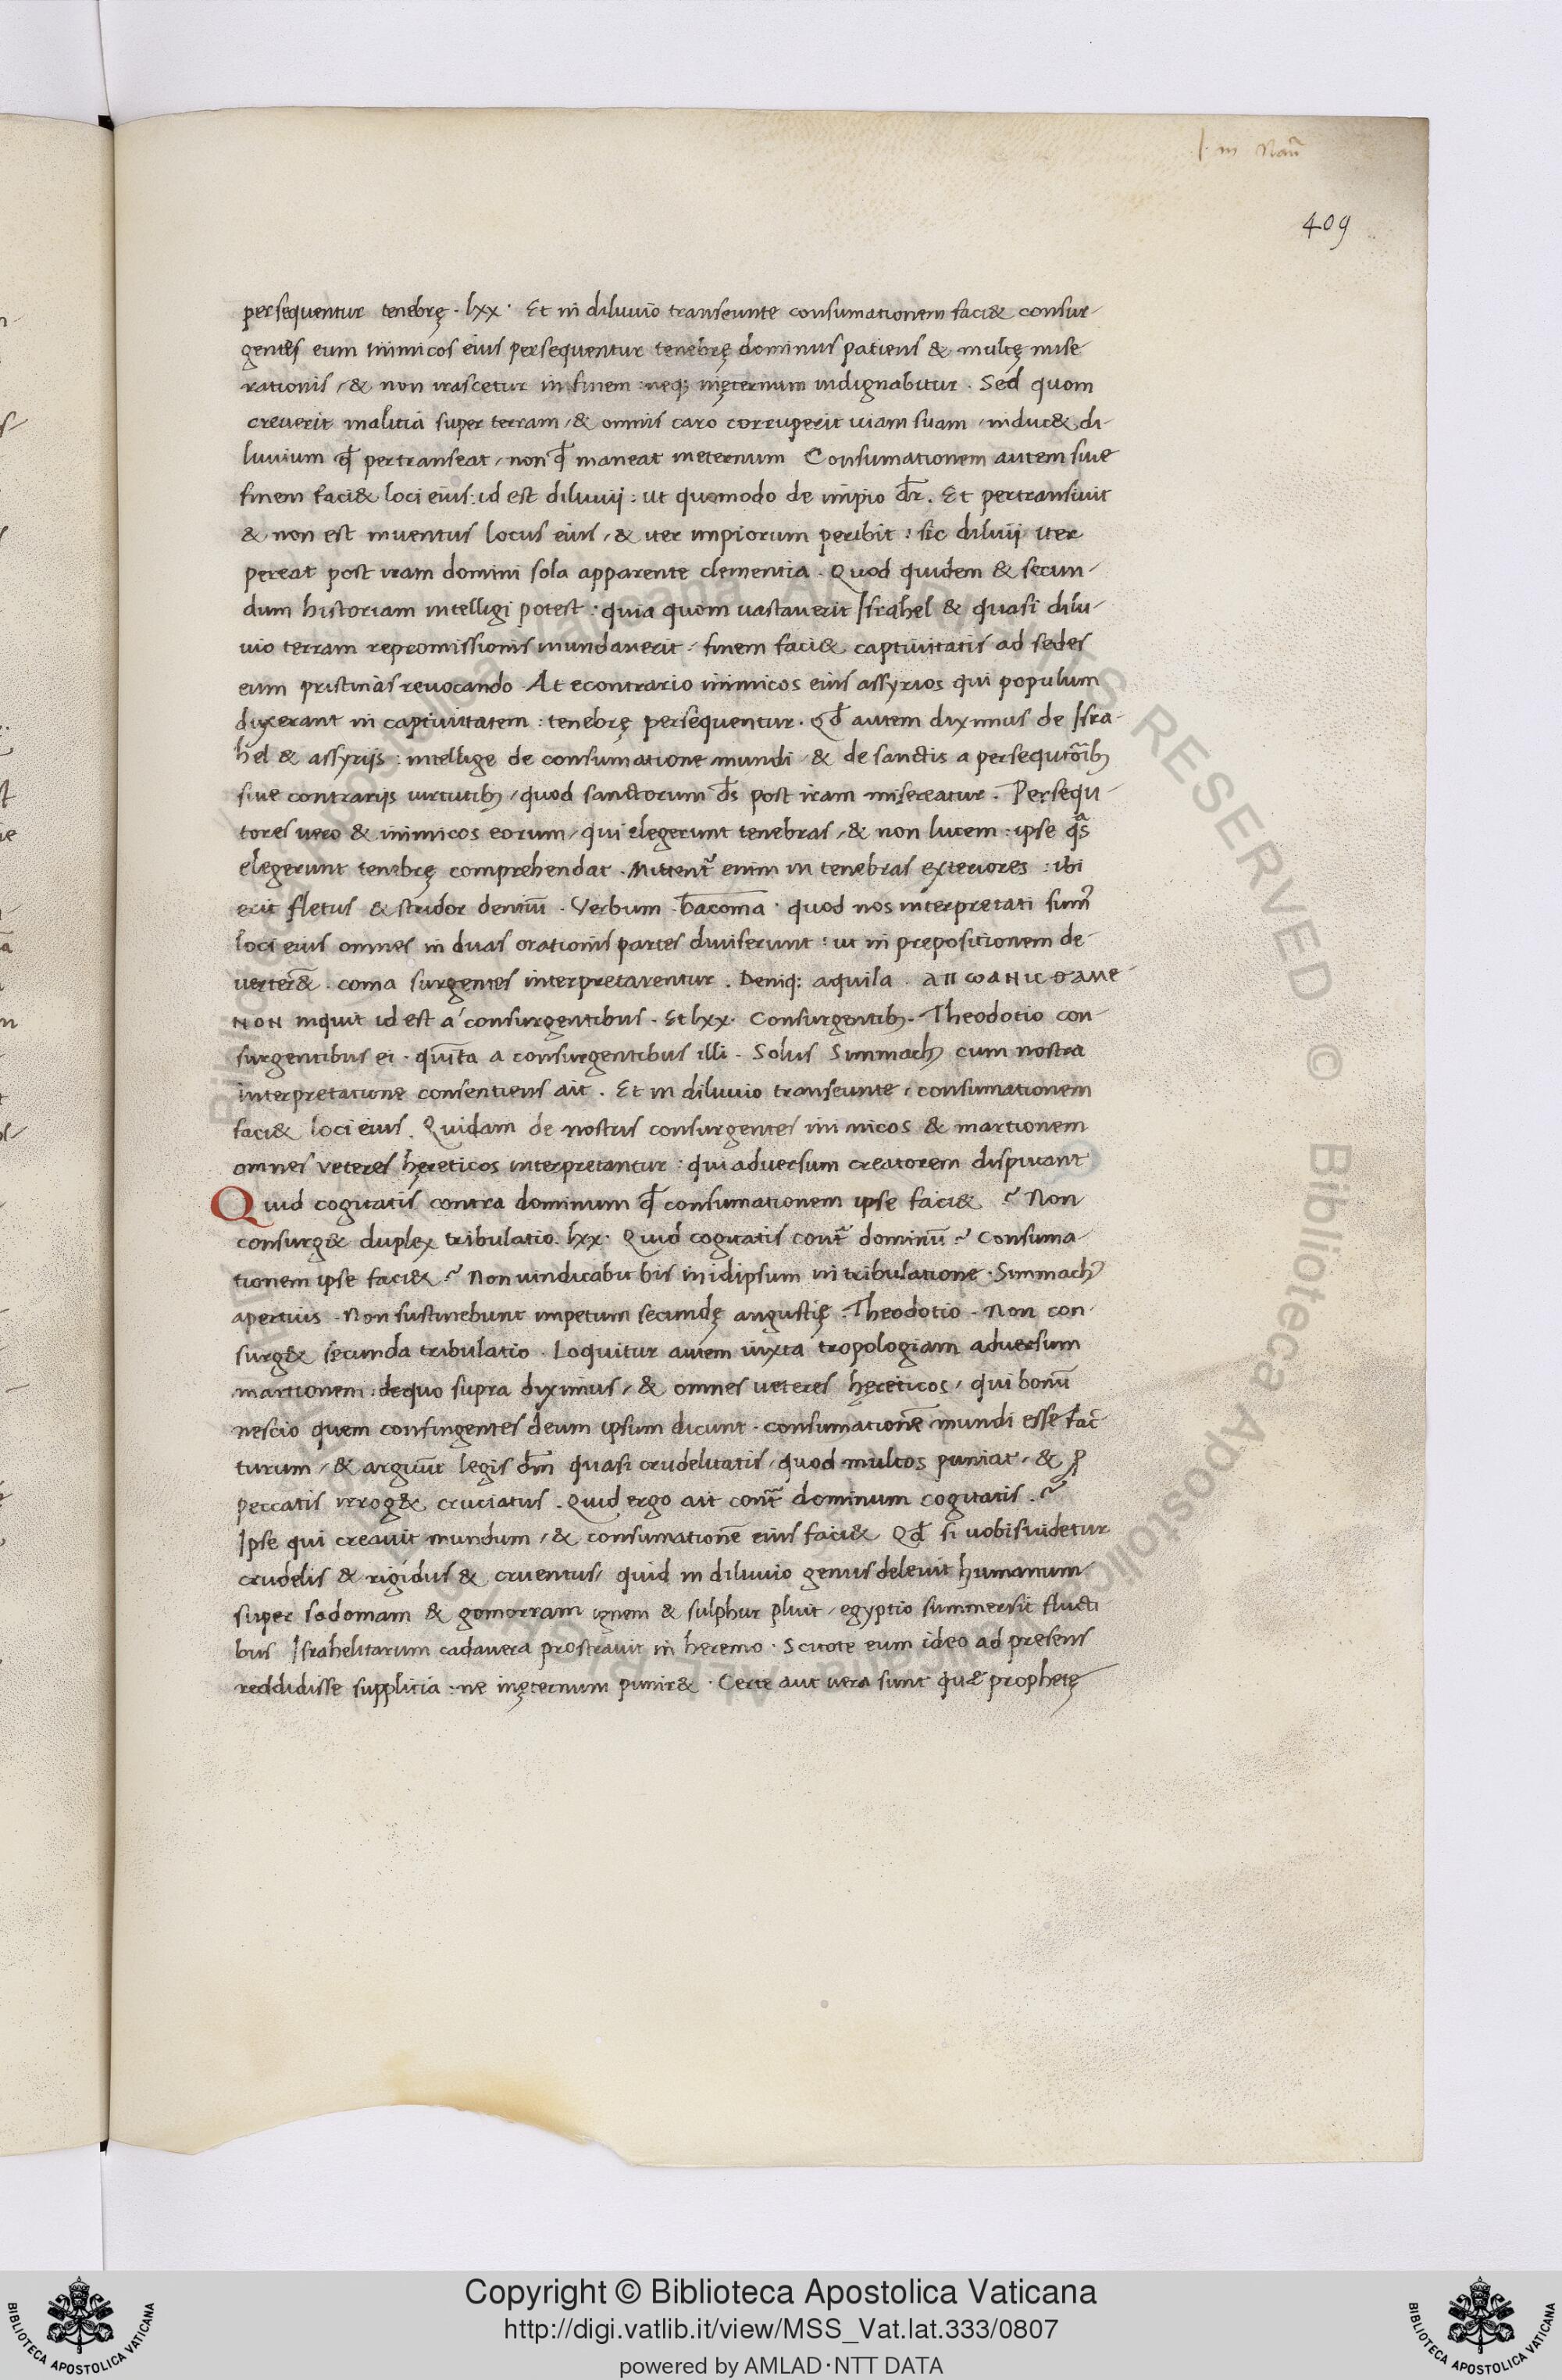 I. in Naũ
409
persequentur tenebrę . lxx . Et in diluuio transeunte consumationem faci& consur-
gentes eum inimicos eius persequentur tenebrę dominus patiens & multę mise
rationis / & non irascetur in finem : neq; inęternum indignabitur . Sed quom
creuerit malitia super terram / & omnis caro corruperit uiam suam / induc& di-
luuium qđ pertranseat / non qđ maneat ineternum Consumationem autem siue
finem faci& loci eius : id est diluuij : ut quomodo de impio dr̄ . Et pertransiuit
& non est inuentus locus eius / & iter impiorum peribit : sic diluuij iter
pereat post iram domini sola apparente clementia . Quod quidem & secun-
dum historiam intelligi potest : quia quom uastauerit Israhel & quasi dilu-
uio terram repromissionis inundauerit / finem faci& captiuitatis ad sedes
eum pristinas reuocando . At econtrario inimicos eius assyrios qui populum
duxerant in captiuitatem : tenebrę persequentur . Qđ autem diximus de Isra-
hel & assyrijs : intellige de consumatione mundi / & de sanctis a persequto͂ibꝫ
siue contrarijs uirtutibꝫ / quod sanctorum d̄s post iram misereatur . Persequ-
tores uero & inimicos eorum / qui elegerunt tenebras / & non lucem : ipse qͣs
elegerunt tenebrę comprehendat . Mittent᷑ enim in tenebras exteriores : ibi
erit fletus & stridor dentiū . Verbum bacoma . quod nos interpretati sum᷒
loci eius omnes in duas orationis partes diuiserunt : ut in prepositionem de-
uerter& . coma surgentes interpretarentur . Deniq; aquila . ΑΠ ω ΑΝΙϹ ΤΑΜΕ
ΝΟΝ inquit id est a consurgentibus . Et lxx . Consurgentibꝫ . Theodotio con-
surgentibus ei . quīta a consurgentibus illi . Solus Simmachꝫ cum nostra
interpretatione consentiens ait . Et in diluuio transeunte / consumationem
faci& loci eius . Quidam de nostris consurgentes inimicos & martionem
omnes veteres hęreticos interpretantur : qui adversum creatorem disputant
Quid cogitatis contra dominum qđ consumationem ipse faci& ? Non
consurg& duplex tribulatio . lxx . Quid cogitatis cont᷑ dominū ? Consuma-
tionem ipse faci& ? Non uindicabit bis in idipsum in tribulatione . Simmach᷒
apertius . Non sustinebunt impetum secundę angustię . Theodotio . Non con-
surg& secunda tribulatio . Loquitur autem iuxta tropologiam adversum
martionem : dequo supra diximus / & omnes ueteres hęreticos / qui bonū
nescio quem confingentes deum ipsum dicunt . consumationē mundi esse fac-
turum / & arguūt legis dm̄ quasi crudelitatis / quod multos puniat / & p̱
peccatis irrog& cruciatus . Quid ergo ait cont᷑ dominum cogitatis . ?
Ipse qui creauit mundum / & consumationē eius faci& Qđ si uobis uidetur
crudelis & rigidus & cruentus / quid in diluuio genus deleuit humanum
super sodomam & gomorram ignem & sulphur pluit / egyptio summersit flucti
bus Israhelitarum cadauera prostrauit in heremo . Scitote eum ideo ad presens
reddidisse supplicia : ne inęternum punir& . Certe aut uera sunt quæ prophetę
Copyright © Biblioteca Apostolica Vaticana
http://digi.vatlib.it/view/MSS_Vat.lat.333/0807
powered by AMLAD·NTT DATA